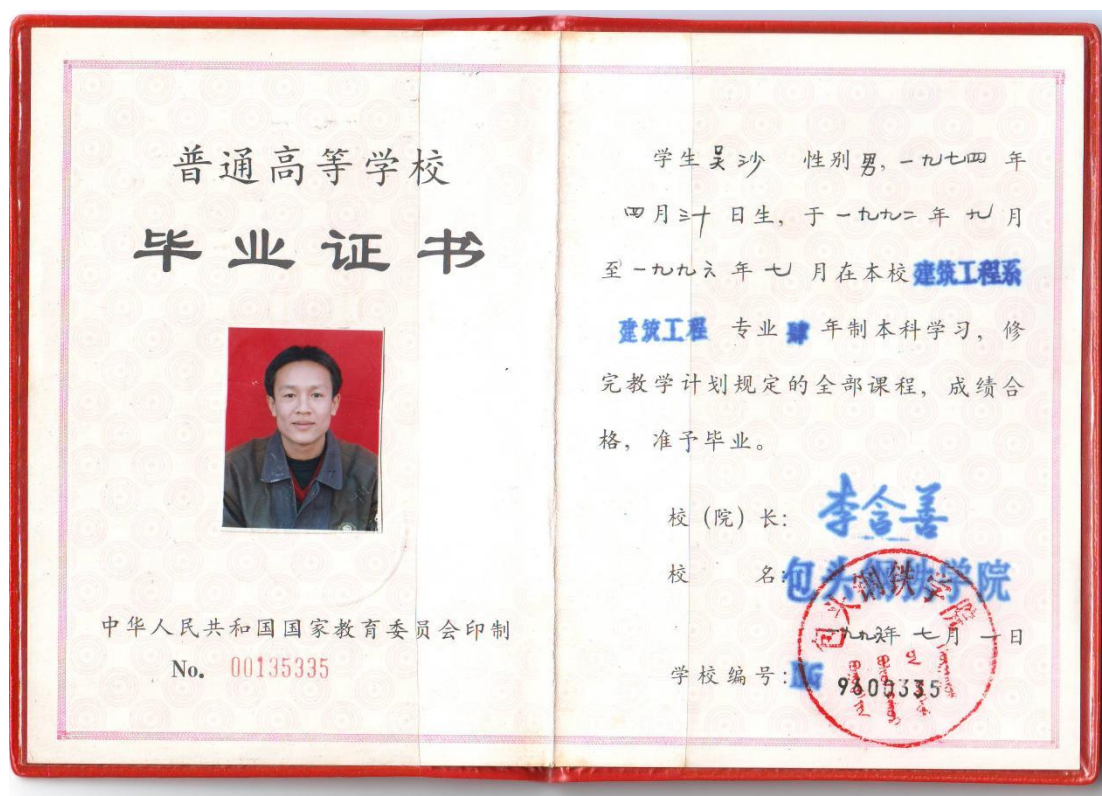 普通高等学校
毕业证书
中华人民共和国国家教育委员会印制
No. 00135335
学生吴沙 性别男,一九七四年
四月三十日生,于一九九二年九月
至一九九六年七月在本校建筑工程系
建筑工程 专业肆年制本科学习,修
完教学计划规定的全部课程,成绩合
格,准予毕业。
校(院)长:李含善
校 名:包头钢铁学院
一九九六年七月一日
学校编号:BG 9600335
包头钢铁学院